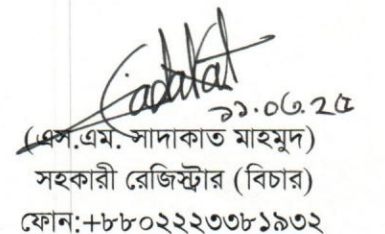 Sadakat
১১.০৬.২৫
(এস.এম. সাদাকাত মাহমুদ)
সহকারী রেজিস্ট্রার (বিচার)
ফোন:+৮৮০২২২৩৩৮১৯৩২